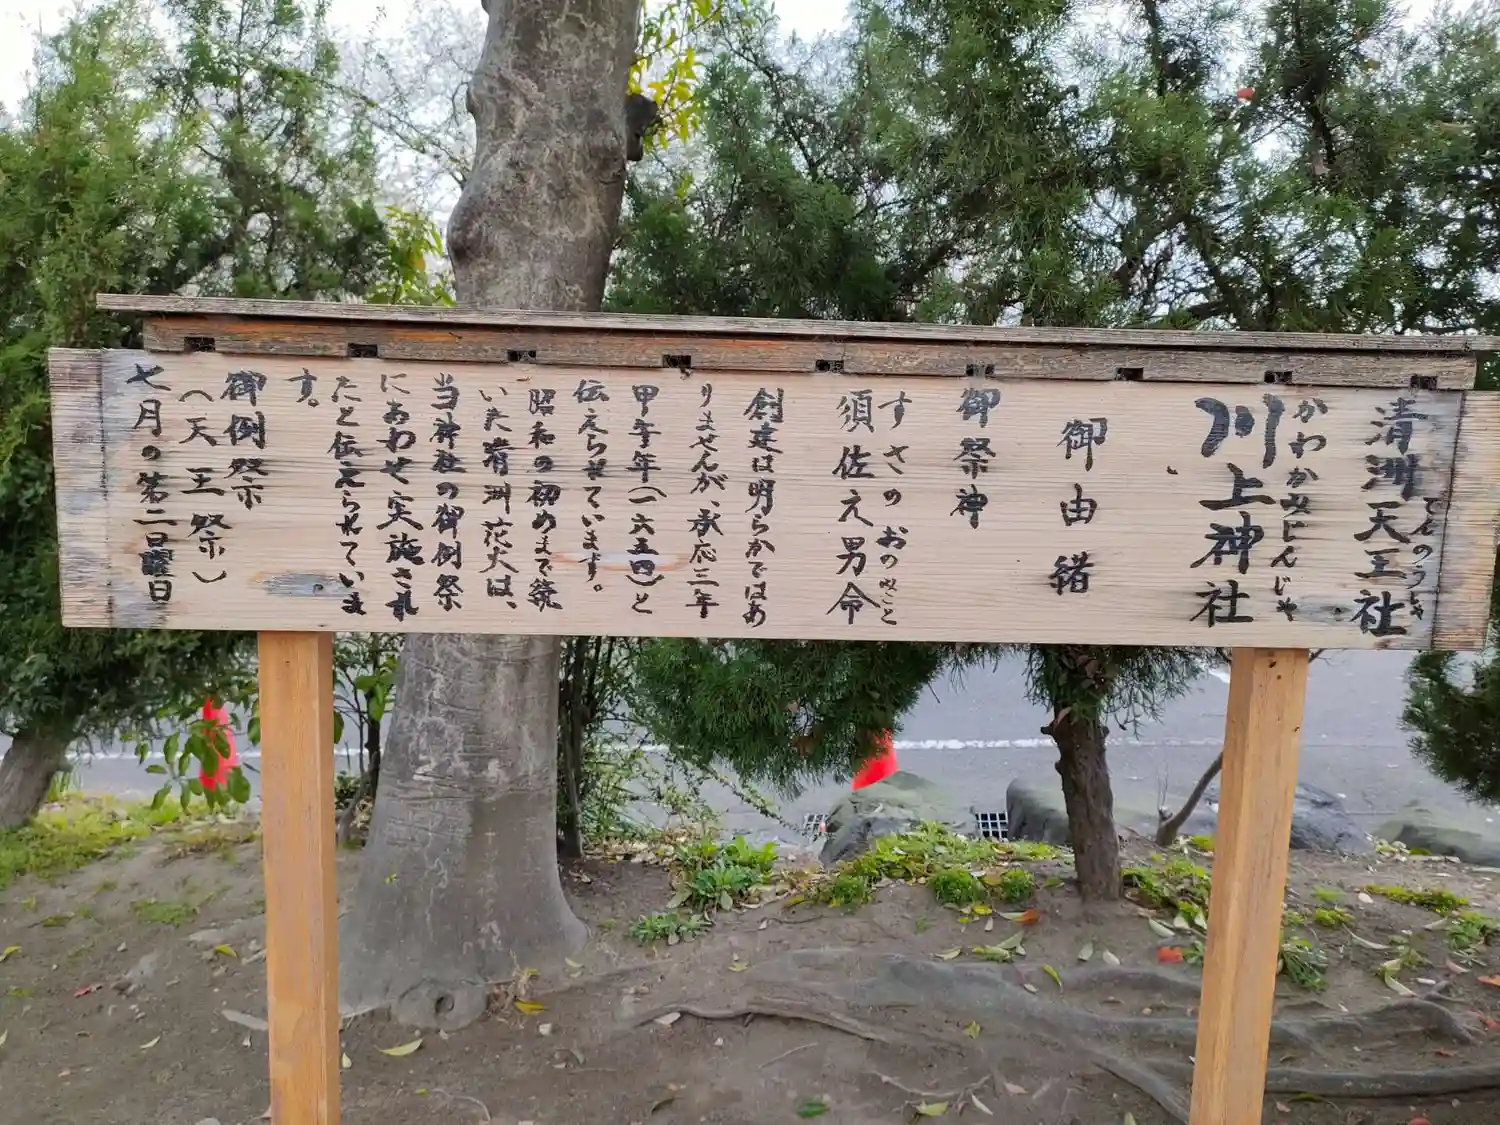 清洲天王社
てんのうしゃ
かわかみじんじゃ
川上神社
御由緒
御祭神
すさのおのみこと
須佐之男命
創建は明らかではあ
りませんが、承応三年
甲午年(一六五四)と
伝えられています。
昭和の初めまで続
いた清洲花火は、
当神社の御例祭
にあわせ実施され
たと伝えられていま
す。
御例祭
(天王祭)
七月の第二日曜日